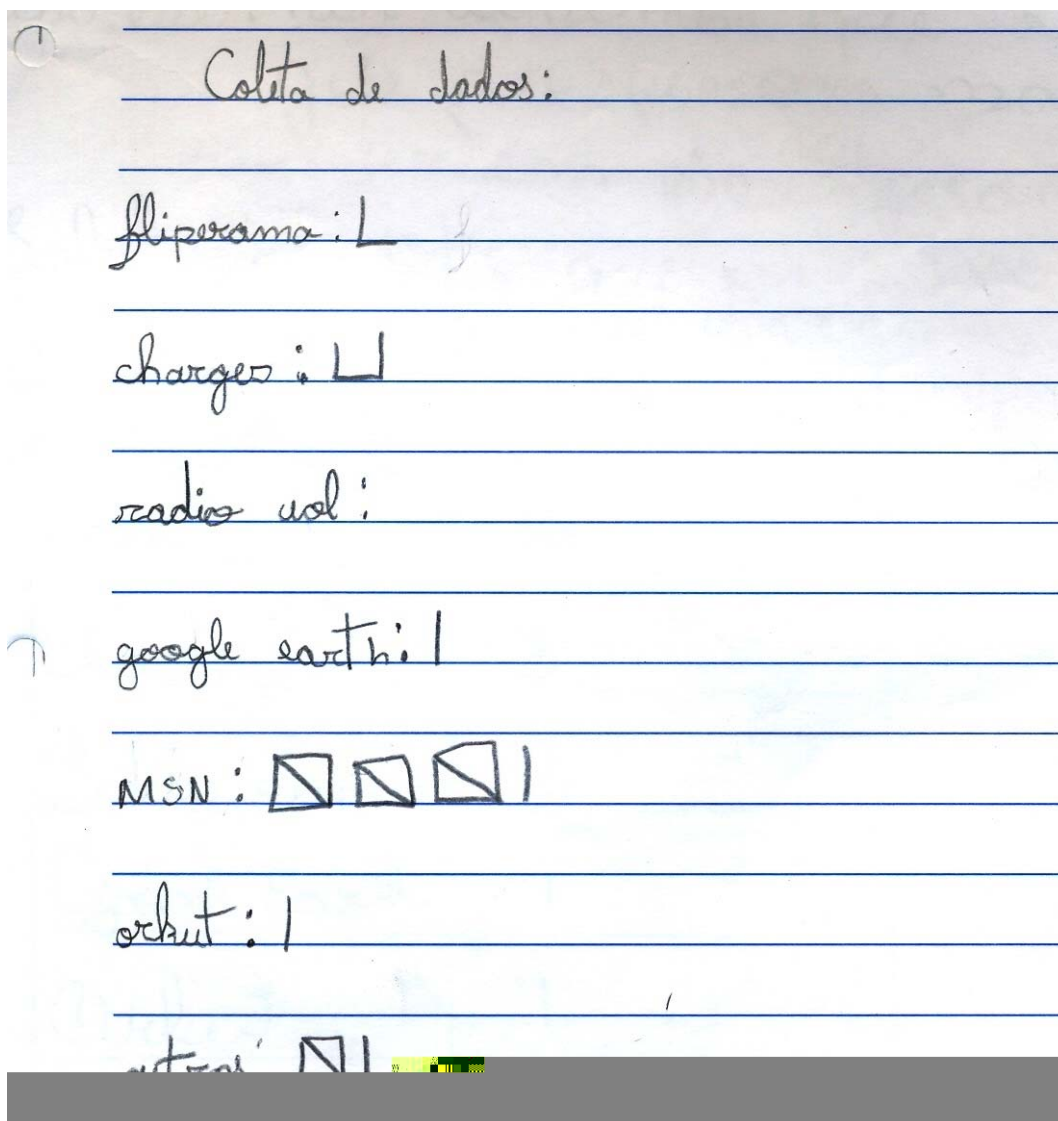 Coleta de dados:
fliperama:
charges:
radio uol:
google earth: |
MSN: |
orkut: |
outros